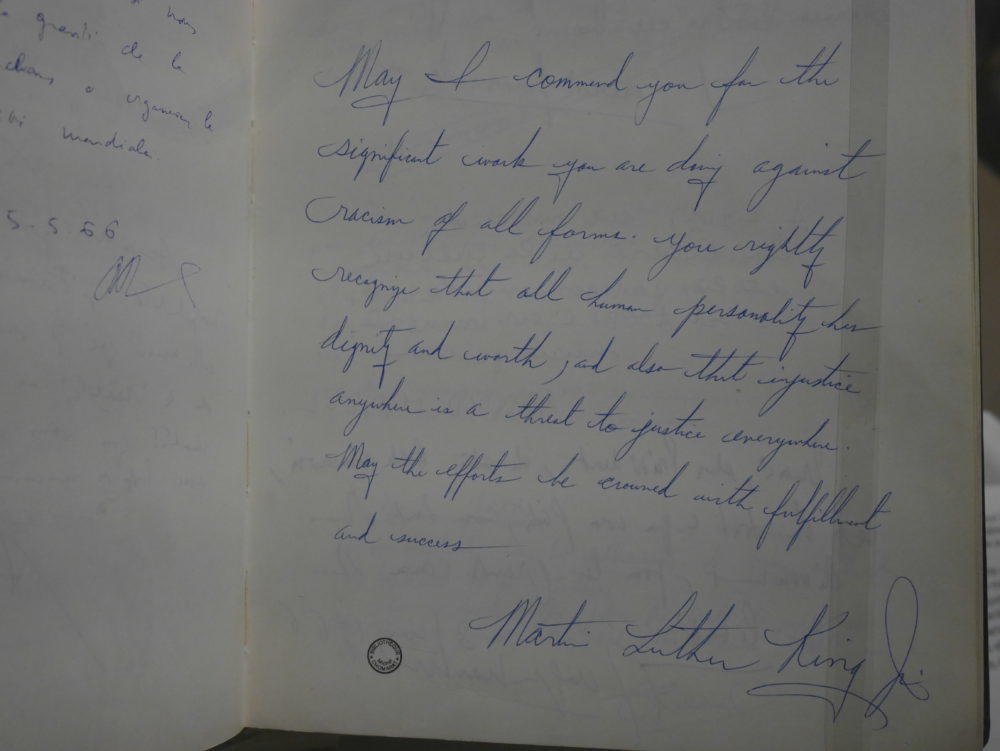 de la
mondiale.
5.5.66
May I commend you for the
significant work you are doing against
racism of all forms. You rightly
recognize that all human personality has
dignity and worth, and also that injustice
anywhere is a threat to justice everywhere.
May the efforts be crowned with fulfillment
and success
Martin Luther King Jr.
BIBLIOTHÈQUE
MUSÉE
L'HOMME